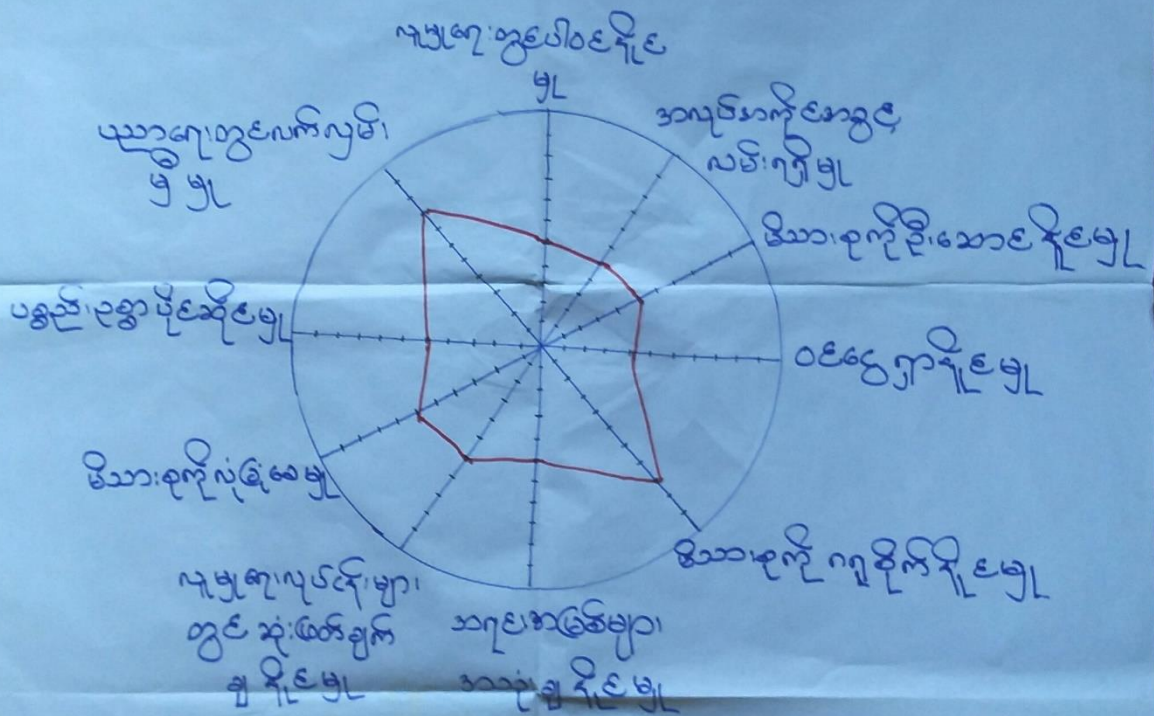 လူမှုရေးတွင်ပါဝင်နိုင်
မှု
အလုပ်အကိုင်အခွင့်
လမ်းရရှိမှု
မိသားစုကိုဦးဆောင်နိုင်မှု
ဝင်ငွေရှာနိုင်မှု
မိသားစုကို ဂရုစိုက်နိုင်မှု
အရင်းအမြစ်များ
အသုံးချနိုင်မှု
လူမှုရေးလုပ်ငန်းများ
တွင် ဆုံးဖြတ်ချက်
ချနိုင်မှု
မိသားစုကိုလုံခြုံစေမှု
ပစ္စည်းဥစ္စာပိုင်ဆိုင်မှု
ပညာရေးတွင်လက်လှမ်း
မှီမှု